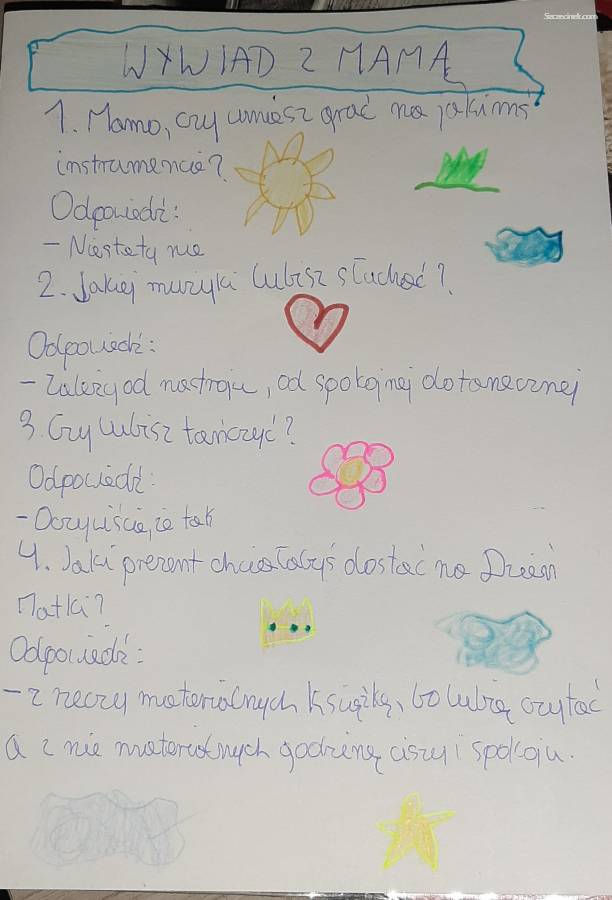 Szczecinek.com
WYWIAD Z MAMĄ
1. Mamo, czy umiesz grać na jakimś
instrumencie?
Odpowiedź:
- Niestety nie
2. Jakiej muzyki lubisz słuchać?
Odpowiedź:
- Zależy od nastroju, od spokojnej do tanecznej
3. Czy lubisz tańczyć?
Odpowiedź:
- Oczywiście, że tak
4. Jaki prezent chciałabyś dostać na Dzień
Matki?
Odpowiedź:
- z rzeczy materialnych książkę, bo lubię czytać
a z nie materialnych godzinę ciszy i spokoju.